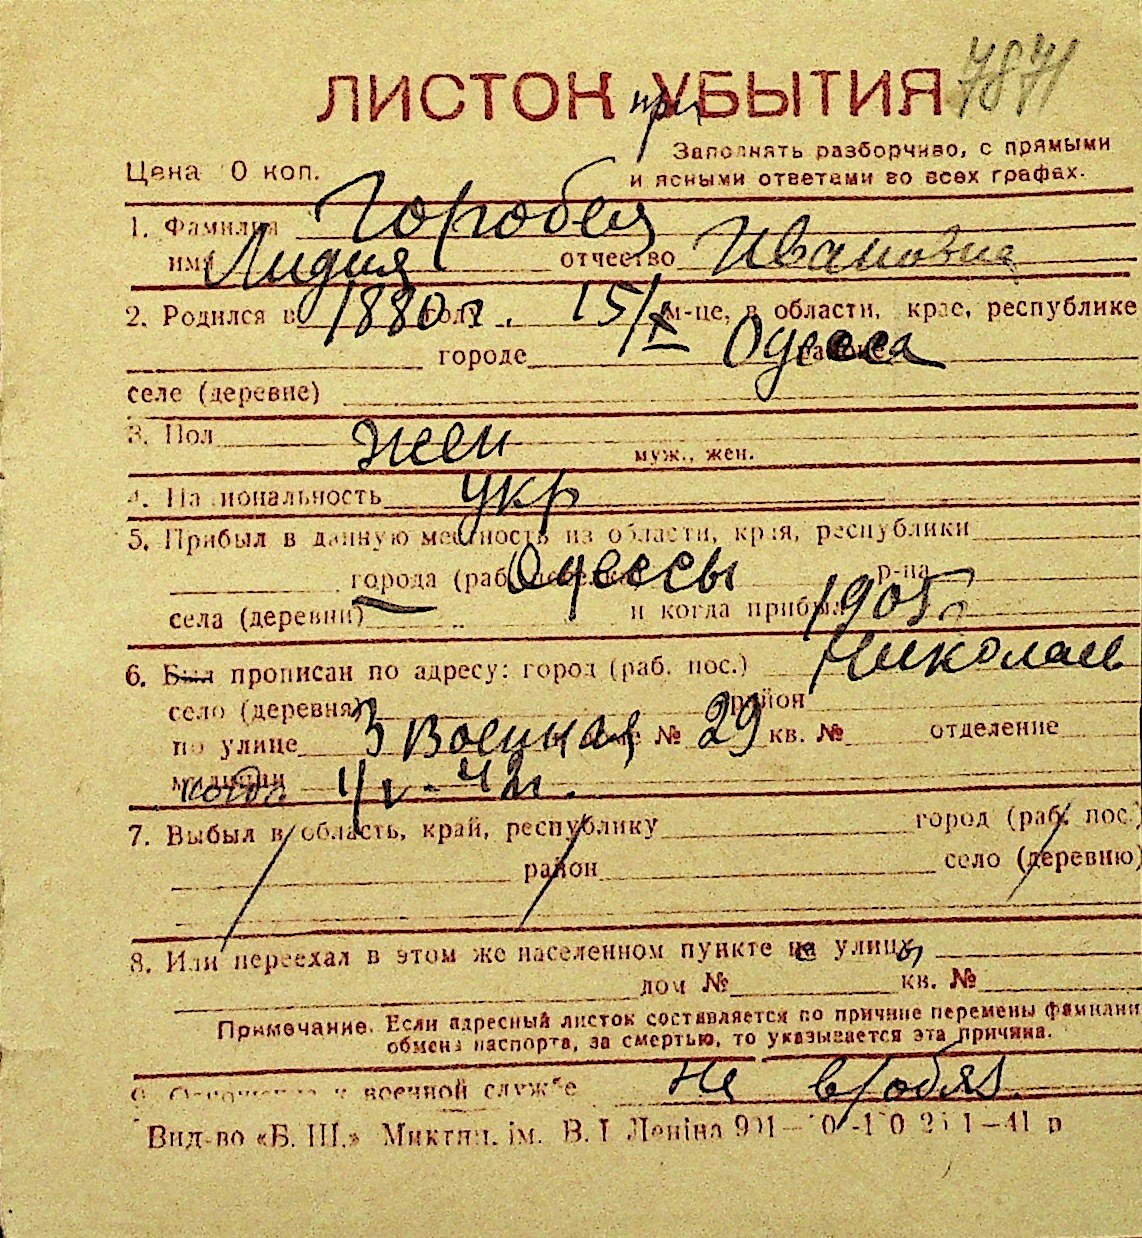 7871
ЛИСТОК при УБЫТИЯ
Цена 0 коп.
Заполнять разборчиво, с прямыми
и ясными ответами во всех графах.
1. Фамилия Горобея
имя Лидия отчество Ивановна
2. Родился в 1880 г. году 15/X м-це, в области, крае, республике
городе Одесса районе
селе (деревне)
3. Пол жен муж., жен.
4. Национальность укр
5. Прибыл в данную местность из области, края, республики
города (раб. поселка) Одессы р-на
села (деревни) и когда прибыл 1905 г
6. Был прописан по адресу: город (раб. пос.) Николаев
село (деревня) район
по улице 3 Военная доме № 29 кв. № отделение
милиции когда 1/V - 42 г.
7. Выбыл в область, край, республику город (раб. пос.)
район село (деревню)
8. Или переехал в этом же населенном пункте с улицы
дом № кв. №
Примечание. Если адресный листок составляется по причине перемены фамилии
обмена паспорта, за смертью, то указывается эта причина.
9. Отношение к военной службе не в/обяз.
Вид-во «Б. Ш.» Миктип. ім. В. І Леніна